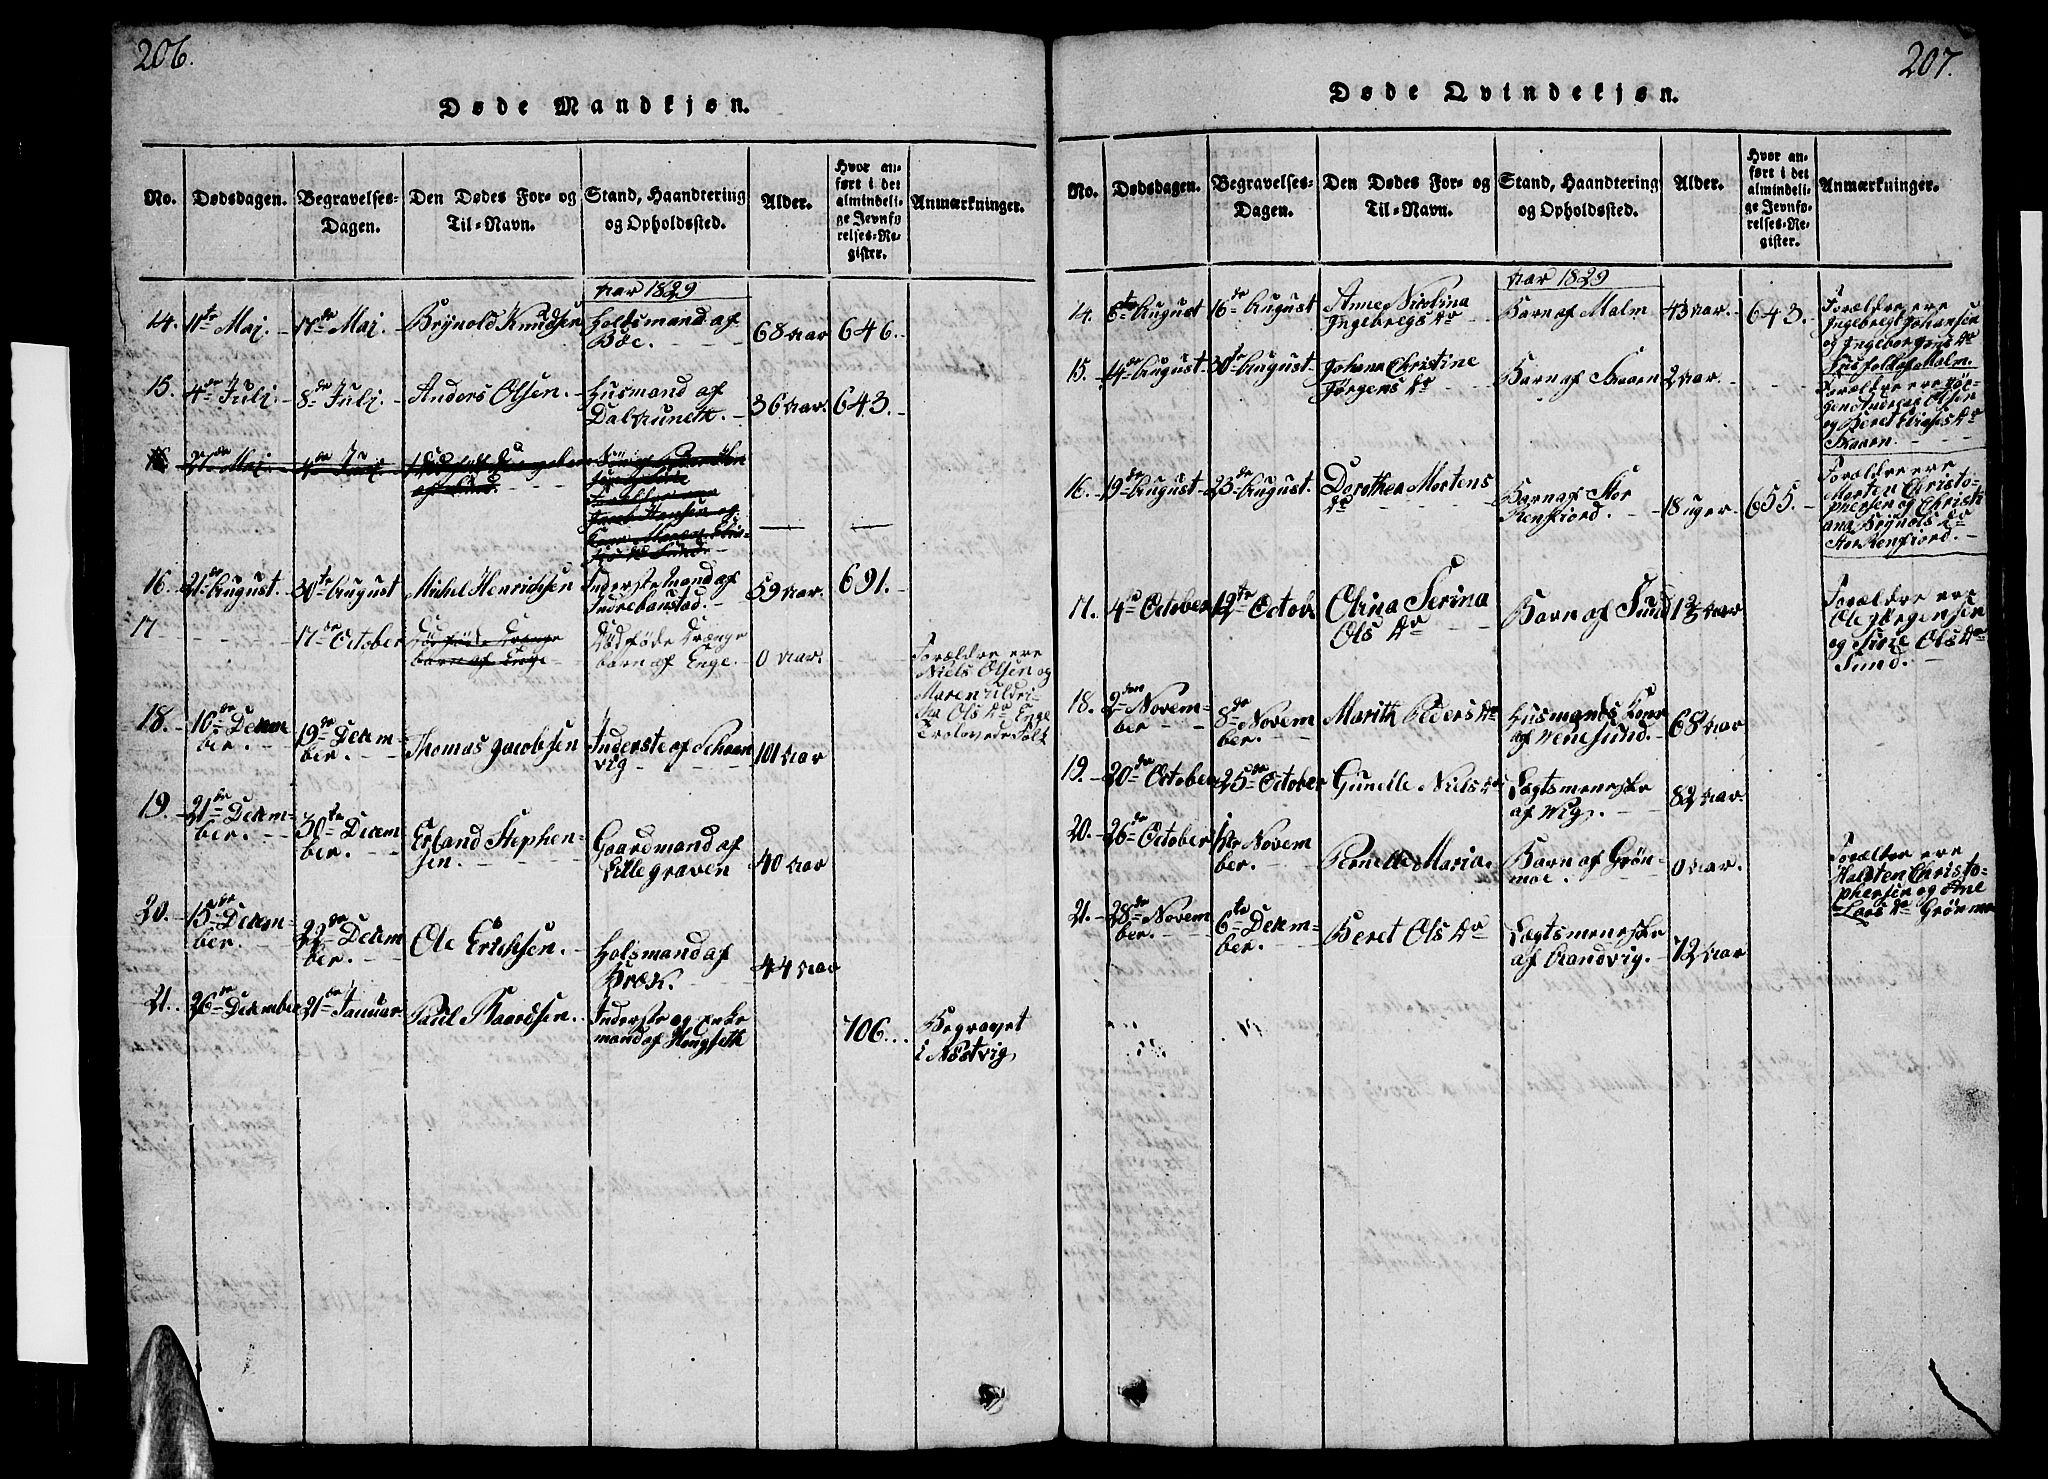 206.
Døde Mandkjøn.
No.
Dødsdagen.
Begravelses-
Dagen.
Den Dødes For- og
Til-Navn.
Stand, Haandtering
og Opholdssted.
Alder.
Hvor an-
ført i det
almindeli-
ge Jevnfø-
relses-Re-
gister.
Anmærkninger.
Aar 1829
14. 11te Maj. 17de Maj. Brynold Knudsen
af
Böe. 68 Aar 646.
15. 4de Julj. 8de Julj. Anders Olsen. Husmand af
36 Aar. 643.
16. 21de August. 30te August Michel Henrichsen Inderste Mand af
59 Aar. 691.
17 17de October Dödföde Drænge
barn af Enge. 0 Aar.
Forældre ere
Niels Olsen og
Maren
Ols Dr Enge
18. 10de Decem
ber. 19de Decem-
ber. Thomas Jacobsen Inderste af
vig 101 Aar
19. 21de Decem-
ber. 30te Decem
ber. Erland Stephen-
sen. Gaardmand af
Lillegraven 40 Aar
20. 15de Decem-
ber. 22de Decem
ber. Ole Erichsen. af
44 Aar
21. 26de December 21de Januar Paul Kaardsen. Inderste og Enke
mand af 706. Begravet
i Næsvig
207.
Døde Qvindekjøn.
No.
Dødsdagen.
Begravelses-
Dagen.
Den Dødes For- og
Til-Navn.
Stand, Haandtering
og Opholdssted.
Alder.
Hvor an-
ført i det
almindeli-
ge Jevnfø-
relses-Re-
gister.
Anmærkninger.
Aar 1829
14. 6te August 16de August Anne Nicolina
Ingebregs Dr Barn af Malm 643.
Forældre ere
Ingebregt Johansen
og Ingeborg Dr
Malm.
15. 14de August 30te August Johana Christine
Jörgens Dr Barn af 2 Aar.
Forældre ere Jör-
gen Andreas Olsen
og Beret Dr
16. 19de August 23de August. Dorothea Mortens
Dr Barn af Stor
Kensfiord. 18 uger 655.
Forældre ere
Morten Christo-
phersen og Christi
ana Brynols Dr
Stor Kensfiord.
17. 4de October 12te Octob. Olina Serina
Ols Dr Barn af Sund
Forældre ere
Ole Jörgensen
og Ols Dr
Sund.
18. 2den Novem-
ber 8de Novem
ber. Marith Peders Dr Husmands Kone
af 68 Aar
19. 20de October 25de October Gunelle Niels Dr Lægtsmenneske
af Wig. 82 Aar
20. 26de October Novem
ber. Pernelle Maria. Barn af Grön-
moe. 0 Aar.
Forældre ere
Halsten Christo-
phersen og Ane
Lars Dr Grönmoe
21. 28de Novem
ber. 6te Decem-
ber. Beret Ols Dr Lægtsmenneske
af 72 Aar